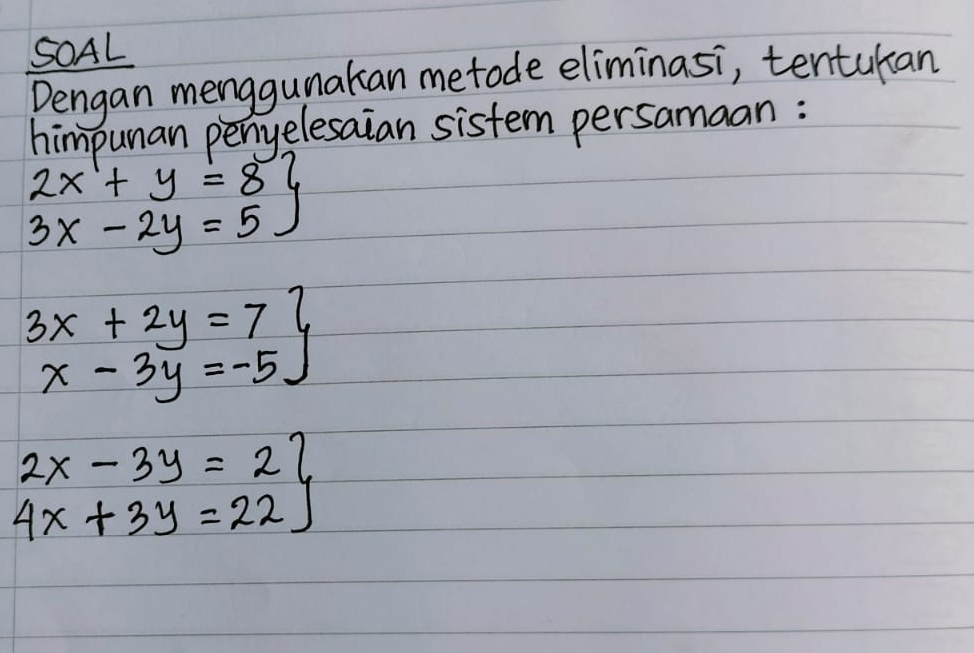 SOAL
Dengan menggunakan metode eliminasi, tentukan
himpunan penyelesaian sistem persamaan :
2x + y = 8 }
3x - 2y = 5
3x + 2y = 7 }
x - 3y = -5
2x - 3y = 2 }
4x + 3y = 22